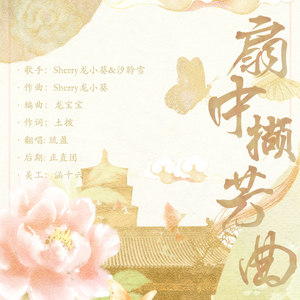 扇中撷芳曲
· 歌手：Sherry龙小葵&汐聆雪
· 作曲：Sherry龙小葵
· 编曲：龙宝宝
· 作词：土拨
· 翻唱：琉盈
· 后期：正直团
· 美工：涵十六